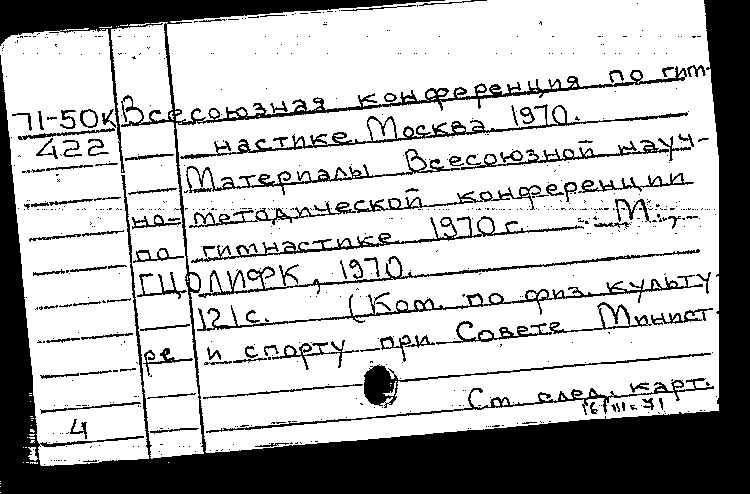 71-50к Всесоюзная конференция по гим-
422 настике. Москва. 1970.
Материалы Всесоюзной науч-
но-методической конференции
по гимнастике 1970 г. - М.,
ГЦОЛИФК, 1970.
121 с. (Ком. по физ. культу-
ре и спорту при Совете Минист-
Ст. след. карт.
4 16/III-71